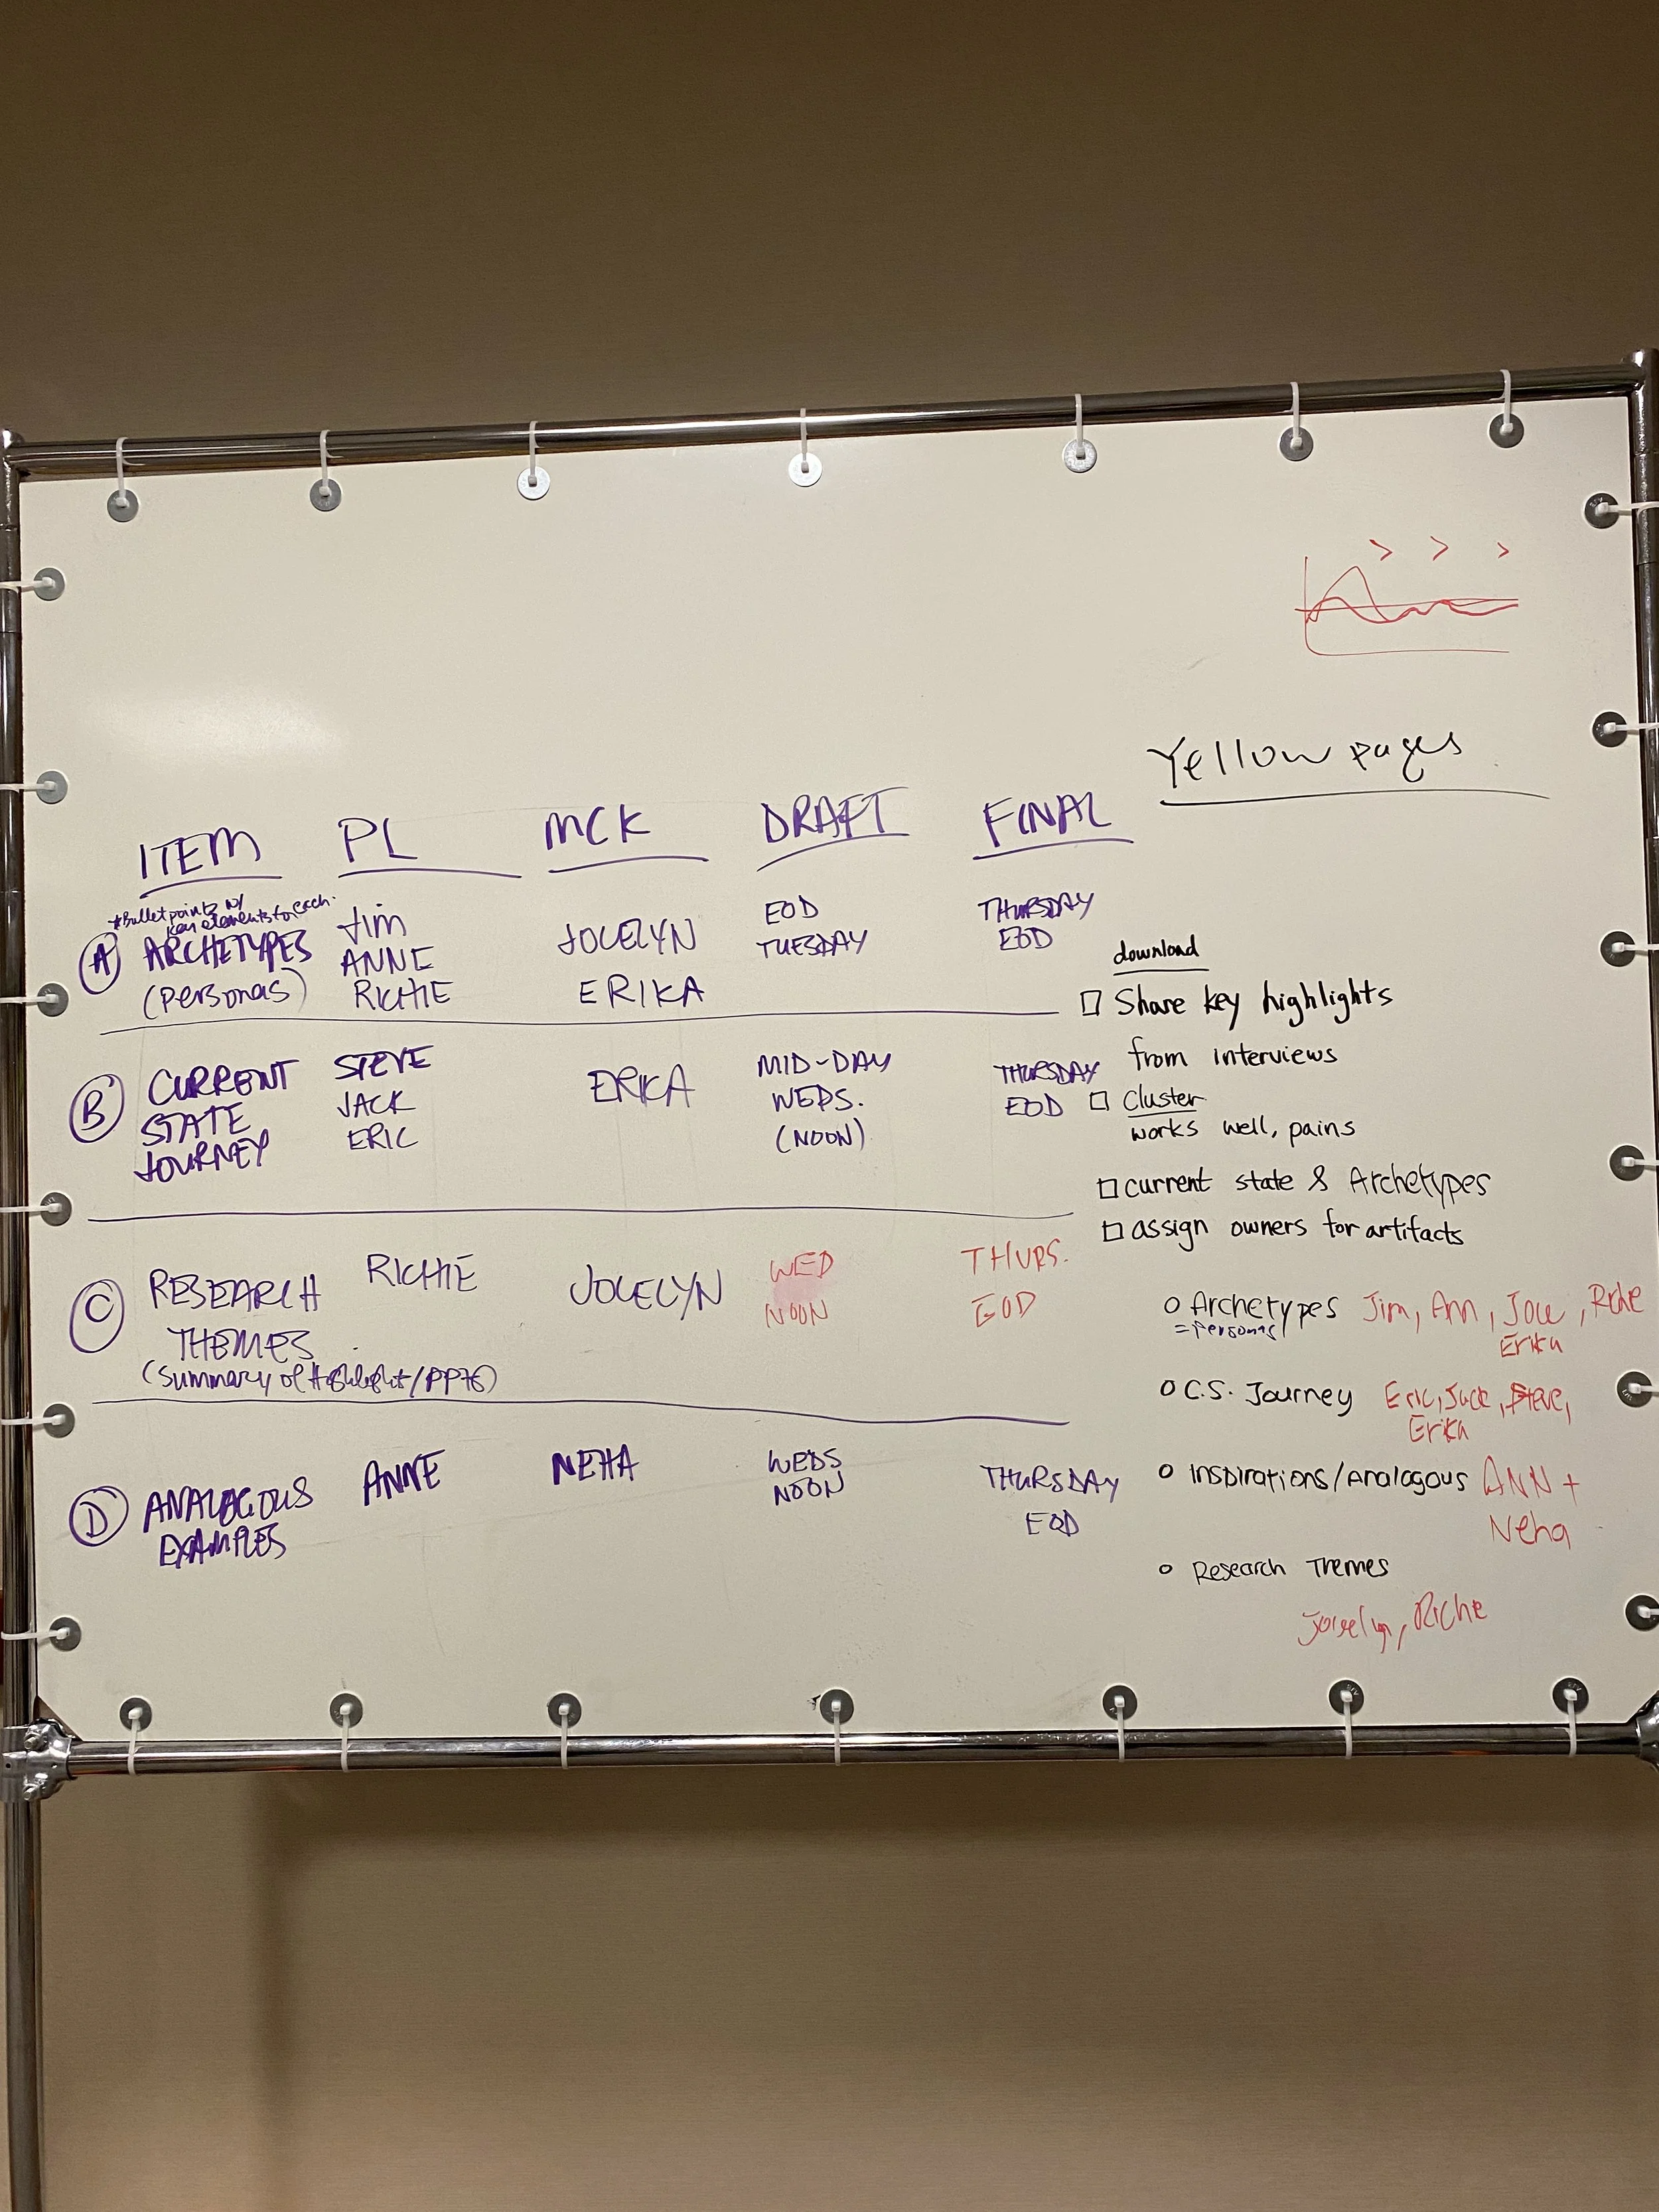 Yellow pages
ITEM PL MCK DRAFT FINAL
*Bullet points w/
key elements for each.
A ARCHETYPES
(personas)
Jim
ANNE
RICHIE
JOCELYN
ERIKA
EOD
TUESDAY
THURSDAY
EOD
B CURRENT
STATE
JOURNEY
STEVE
JACK
ERIC
ERIKA
MID-DAY
WEDS.
(NOON)
THURSDAY
EOD
C RESEARCH
THEMES
(Summary of Highlight/
RICHIE
JOCELYN
WED
NOON
THURS.
EOD
D ANALOGOUS
EXAMPLES
ANNE
NEHA
WEDS
NOON
THURSDAY
EOD
download
Share key highlights
from interviews
Cluster
works well, pains
current state & Archetypes
assign owners for artifacts
Archetypes Jim, Ann,
= personas
Erika
C.S. Journey Eric, Jack, Steve,
Erika
Inspirations/Analogous ANN +
Neha
Research Themes
Jocelyn, Richie